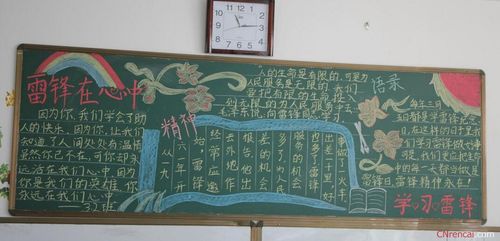 雷锋在心中
因为你,我们学会了助
人的快乐,因为你,让我们
知道了人间处处有温情
虽然你已不在,可你却永
远活在我们心中,因为
你是我们的英雄,你
永远在我们心中。
32班
精神
"人的生命是有限的,可是为
人民服务是无限的,我们
要把有限的
到无限的为人民服务
毛泽东说:向雷锋同志学习
语录
事做了一火车
出差一千里,好
也多了雷锋
服务的机会
多了为人民
差的机会
报告,他出
去外地作
经常应邀
始,雷锋
六一年开
从一九
每年三月
五日都是学雷锋纪念
日,在这样的日子里,我
们要学习雷锋做好事
学习雷锋
CNrencai.com